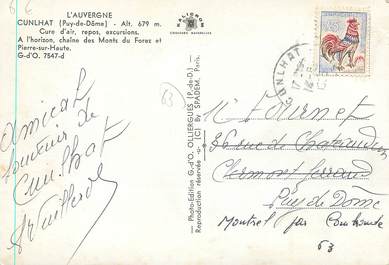 L'AUVERGNE
CUNLHAT (Puy-de-Dôme) - Alt. 679 m.
Cure d'air, repos, excursions.
A l'horizon, chaîne des Monts du Forez et
Pierre-sur-Haute.
G-d'O. 7547-d
Amical
souvenir de
Cunlhat
Photo-Edition G.-d'O. OLLIERGUES (P.-de-D.)
Reproduction réservée (C) by SPADEM, Paris.
63
CUNLHAT
17
Mr Fournet
36 rue de
Clermont Ferrand
Puy de Dôme
Montrel par
63